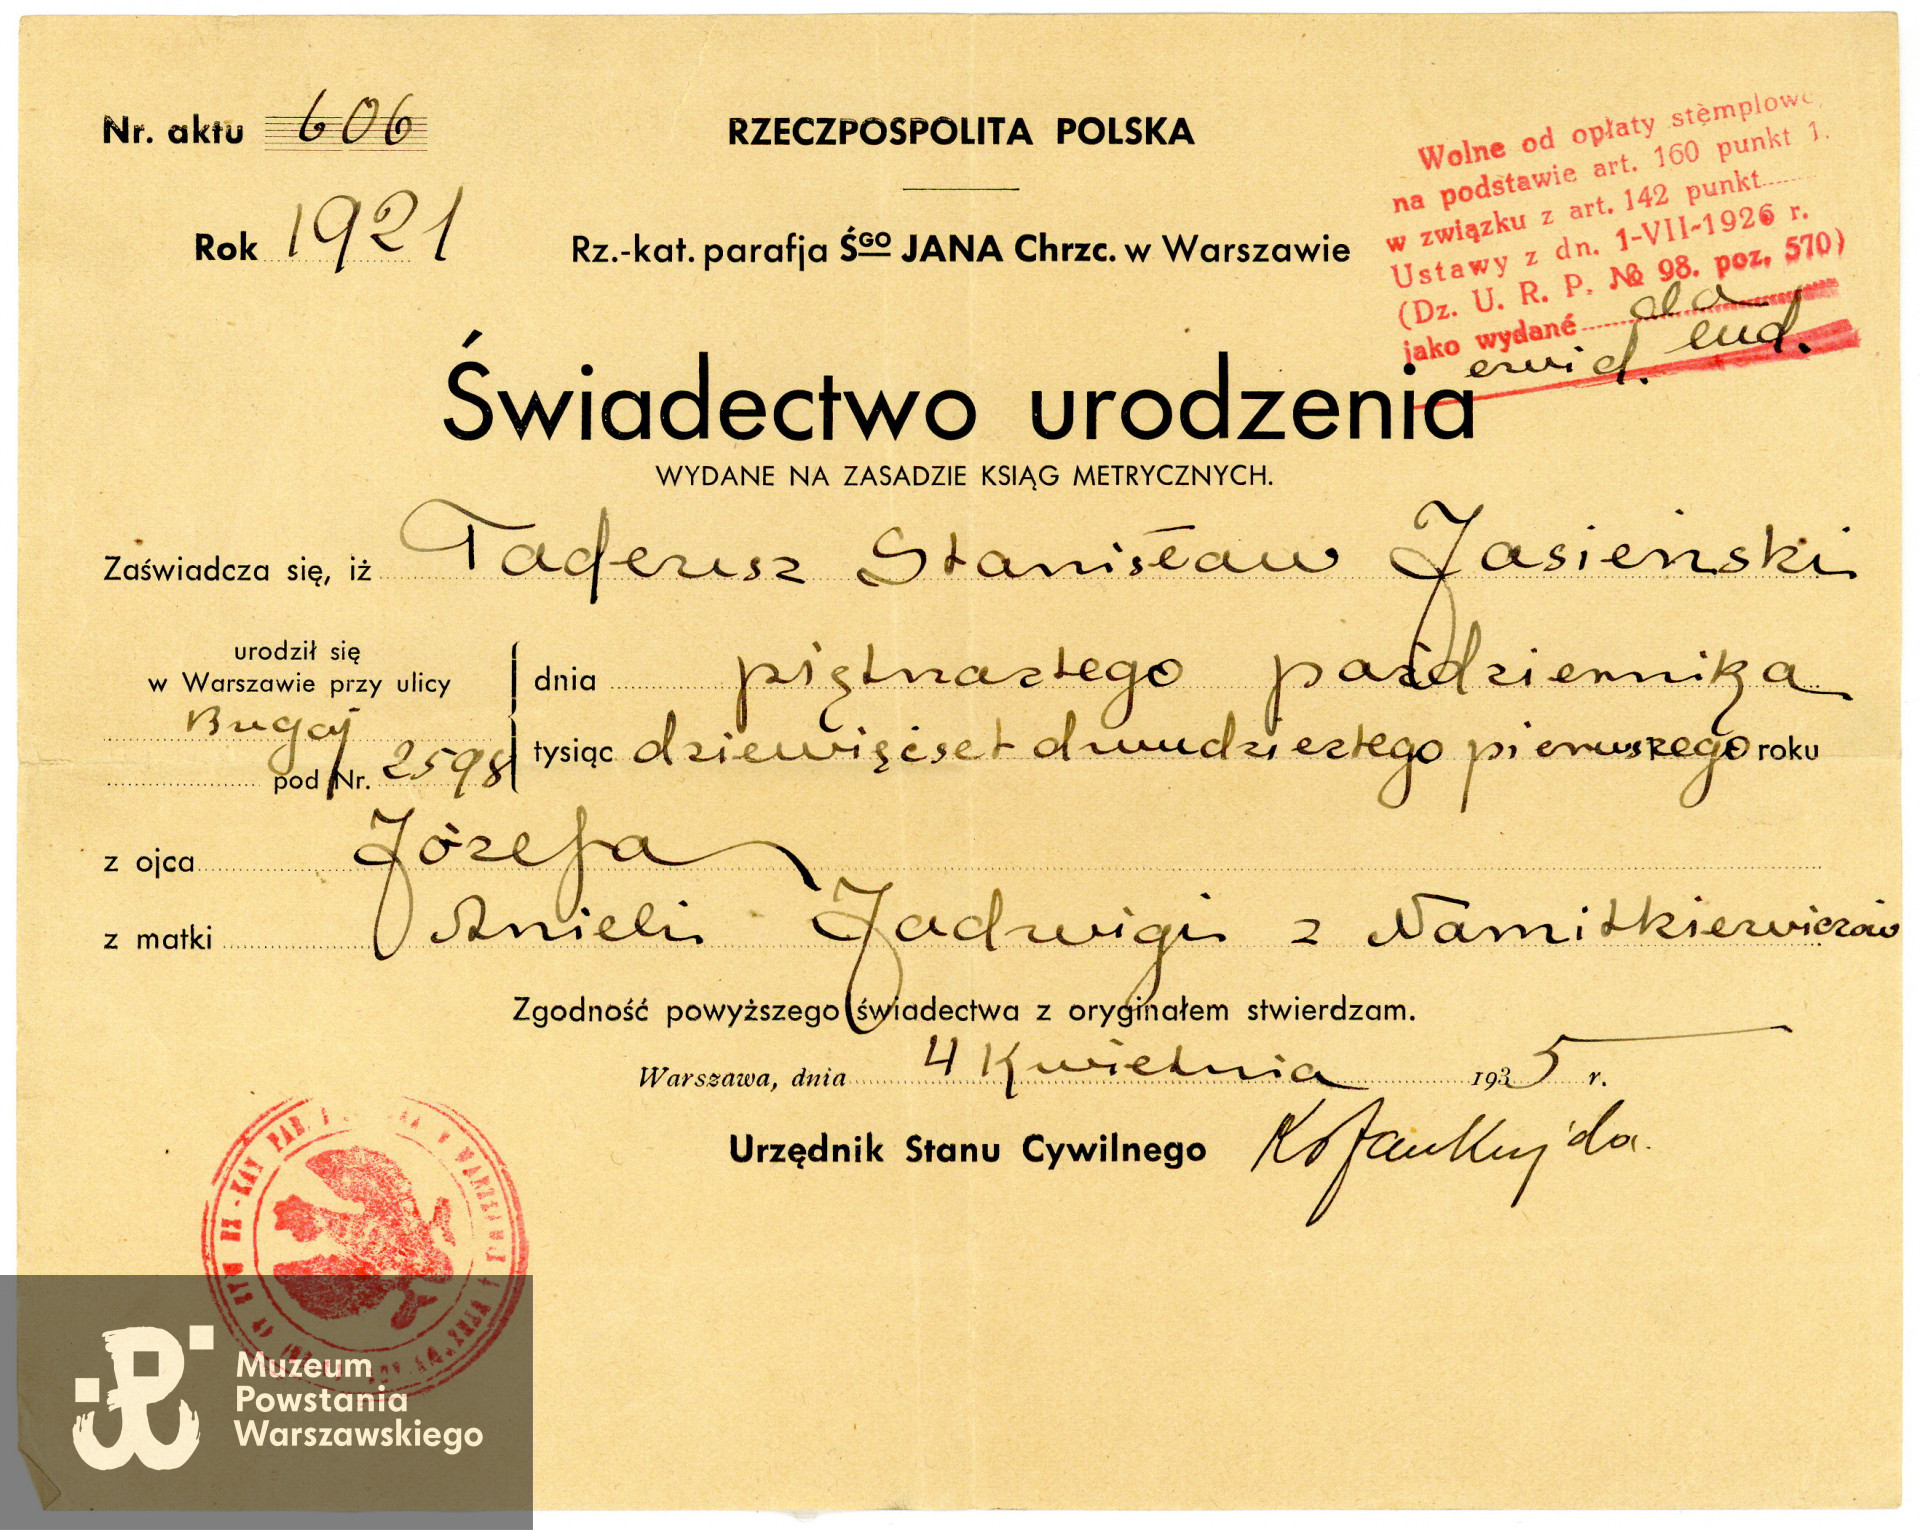 Nr. aktu 606
RZECZPOSPOLITA POLSKA
Rok 1921
Rz.-kat. parafja ŚGO JANA Chrzc. w Warszawie
Wolne od opłaty stemplowe
na podstawie art. 160 punkt 1.
w związku z art. 142 punkt
Ustawy z dn. 1-VII-1926 r.
(Dz. U. R. P. № 98. poz. 570)
jako wydané dla
ewid. lud.
Świadectwo urodzenia
WYDANE NA ZASADZIE KSIĄG METRYCZNYCH.
Zaświadcza się, iż Tadeusz Stanisław Jasieński
urodził się
w Warszawie przy ulicy
Bugaj
pod Nr. 2598
dnia piętnastego października
tysiąc dziewięćset dwudziestego pierwszego roku
z ojca Józefa
z matki Anieli Jadwigi z Namitkiewiczów
Zgodność powyższego świadectwa z oryginałem stwierdzam.
Warszawa, dnia 4 Kwietnia 1935 r.
Urzędnik Stanu Cywilnego
Muzeum
Powstania
Warszawskiego